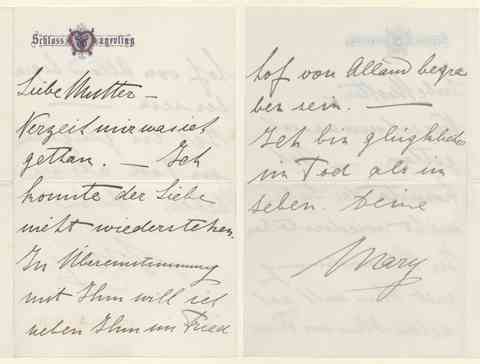 Schloss Mayerling
Liebe Mutter –
Verzeit mir was ich
gethan. – Ich
konnte der Liebe
nicht wiederstehen.
In Übereinstimmung
mit Ihm will ich
neben Ihm im Fried
hof von Alland begra
ben sein. –
Ich bin glücklicher
im Tod als im
Leben. Deine
Mary